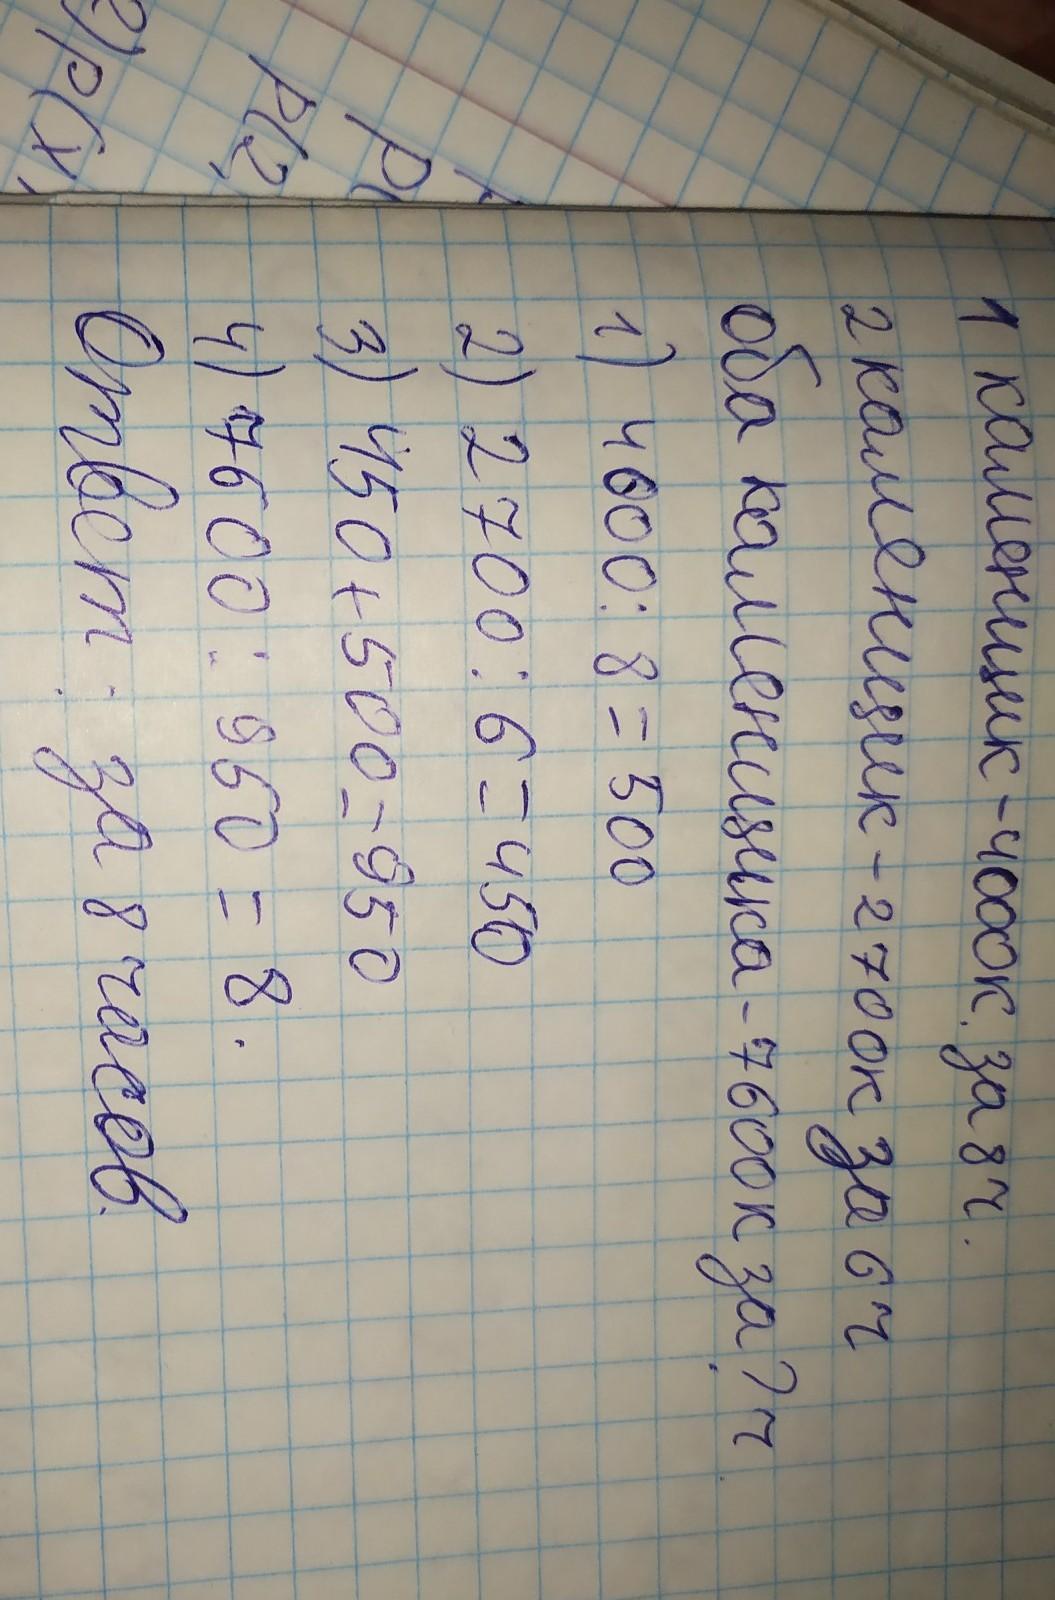 2) p(x,
p(2
p(
1 каменщик - 400к. за 8 ч.
2 каменщик - 2700к за 6 ч
оба каменщика - 7600к за ? ч.
1) 4000 : 8 = 500
2) 2700 : 6 = 450
3) 450 + 500 = 950
4) 7600 : 950 = 8.
Ответ : за 8 часов.